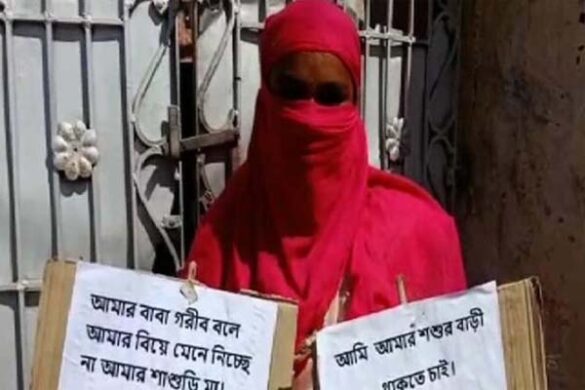 আমার বাবা গরীব বলে
আমার বিয়ে মেনে নিচ্ছে
না আমার শাশুড়ি মা।
আমি আমার শশুর বাড়ী
থাকতে চাই।